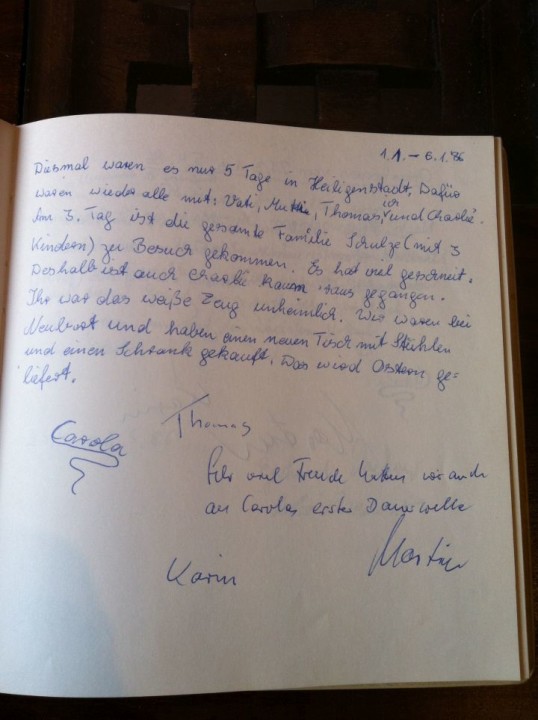 1.1. – 6.1.86
Diesmal waren es nur 5 Tage in Heiligenstadt. Dafür
waren wieder alle mit: Vati, Mutti, Thomas, ich und Charlie.
Am 3. Tag ist die gesamte Familie Schulze (mit 3
Kindern) zu Besuch gekommen. Es hat viel geschneit.
Deshalb ist auch Charlie kaum raus gegangen.
Ihr war das weiße Zeug unheimlich. Wir waren bei
Neubert und haben einen neuen Tisch mit Stühlen
und einen Schrank gekauft. Das wird Ostern ge=
liefert.
Thomas
Carola
Sehr viel Freude hatten wir auch
an Carolas erster Dauerwelle
Martin
Karin